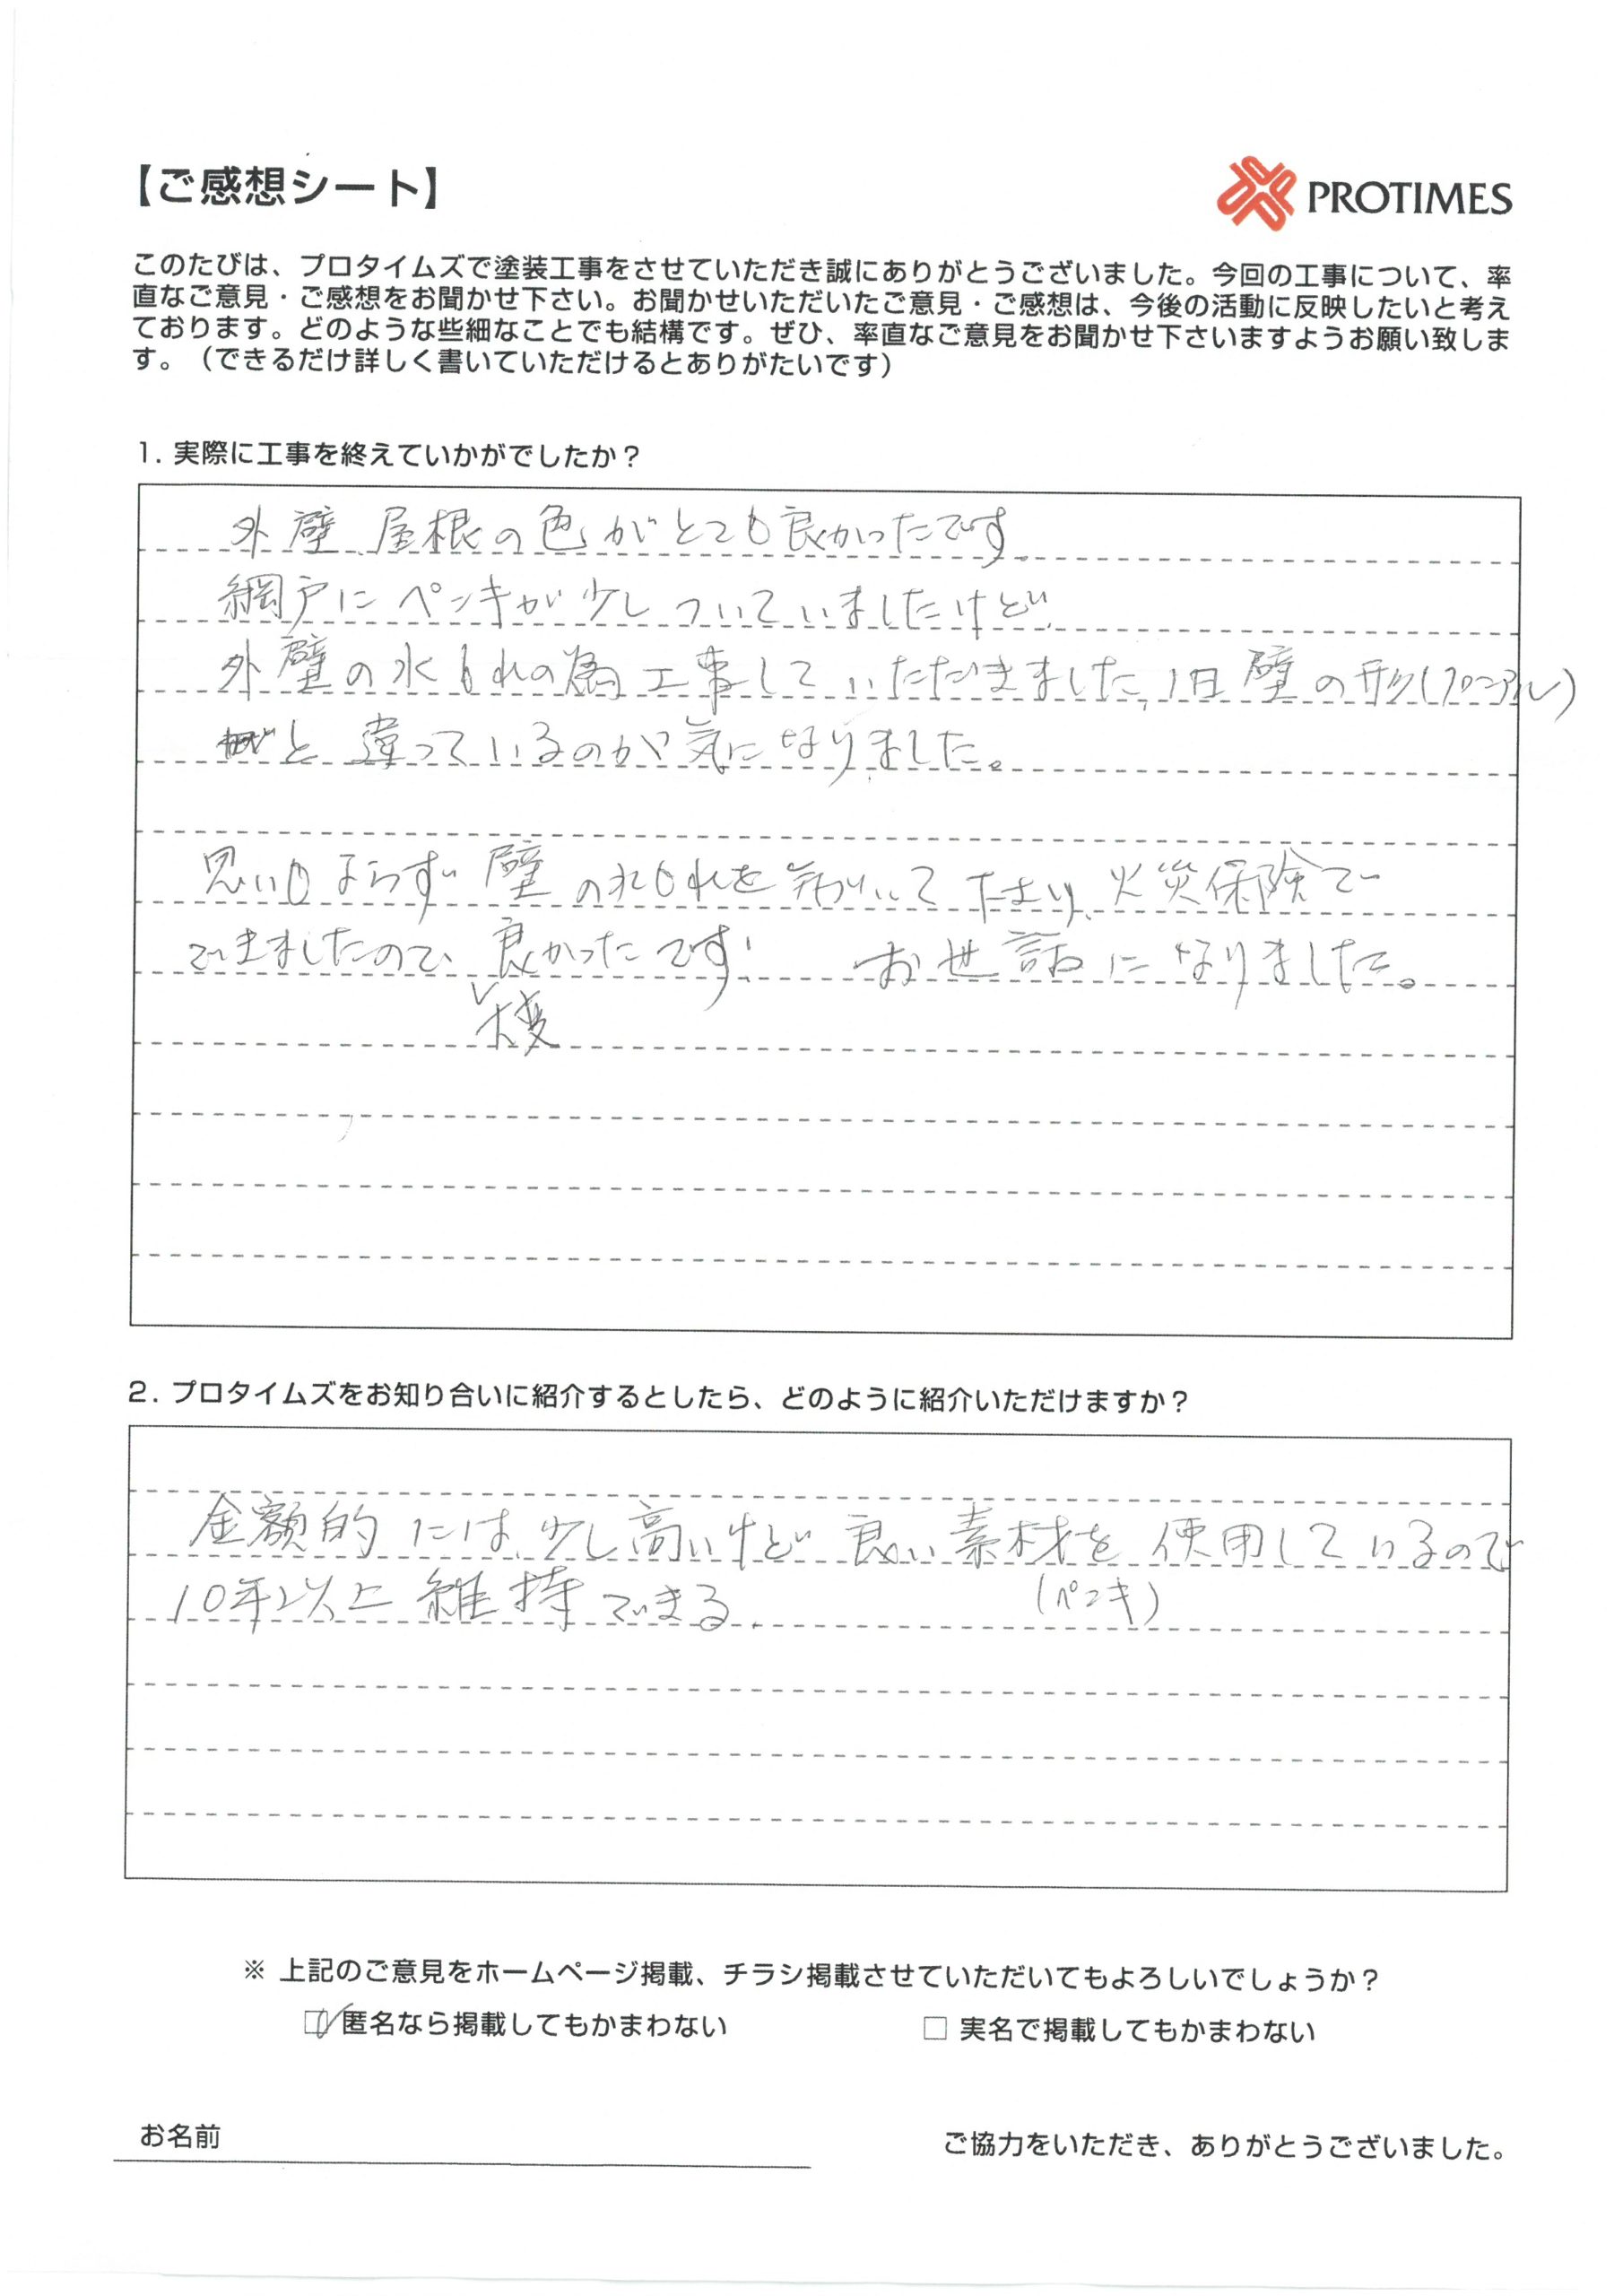 【ご感想シート】
PROTIMES
このたびは、プロタイムズで塗装工事をさせていただき誠にありがとうございました。今回の工事について、率
直なご意見・ご感想をお聞かせ下さい。お聞かせいただいたご意見・ご感想は、今後の活動に反映したいと考え
ております。どのような些細なことでも結構です。ぜひ、率直なご意見をお聞かせ下さいますようお願い致しま
す。（できるだけ詳しく書いていただけるとありがたいです）
1. 実際に工事を終えていかがでしたか？
外壁、屋根の色がとても良かったです。
網戸にペンキが少しついていましたけど、
外壁の水もれの為工事していただきました、旧壁の形(
と違っているのが気になりました。
思いもよらず壁の水もれを 火災保険で
できましたので、良かったです! お世話になりました。
大変
2. プロタイムズをお知り合いに紹介するとしたら、どのように紹介いただけますか？
金額的には、少し高いけど良い素材を使用しているので
10年以上維持できる。 (ペンキ)
※ 上記のご意見をホームページ掲載、チラシ掲載させていただいてもよろしいでしょうか？
☑ 匿名なら掲載してもかまわない □ 実名で掲載してもかまわない
お名前 ご協力をいただき、ありがとうございました。